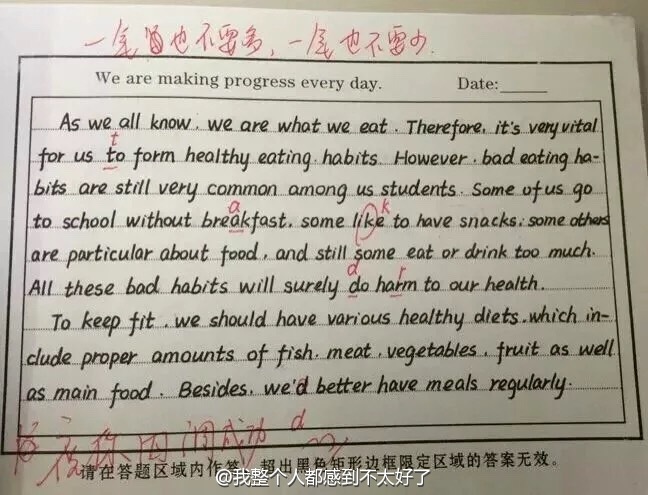 一笔也不要多，一笔也不要少.
We are making progress every day. Date:
As we all know, we are what we eat. Therefore, it's very vital
t
for us to form healthy eating habits. However, bad eating ha-
bits are still very common among us students. Some of us go
a k
to school without breakfast, some like to have snacks; some others
are particular about food, and still some eat or drink too much.
d r
All these bad habits will surely do harm to our health.
To keep fit, we should have various healthy diets, which in-
clude proper amounts of fish, meat, vegetables, fruit as well
as main food. Besides, we'd better have meals regularly.
d
成功
请在答题区域内作答，超出黑色矩形边框限定区域的答案无效。
@我整个人都感到不太好了